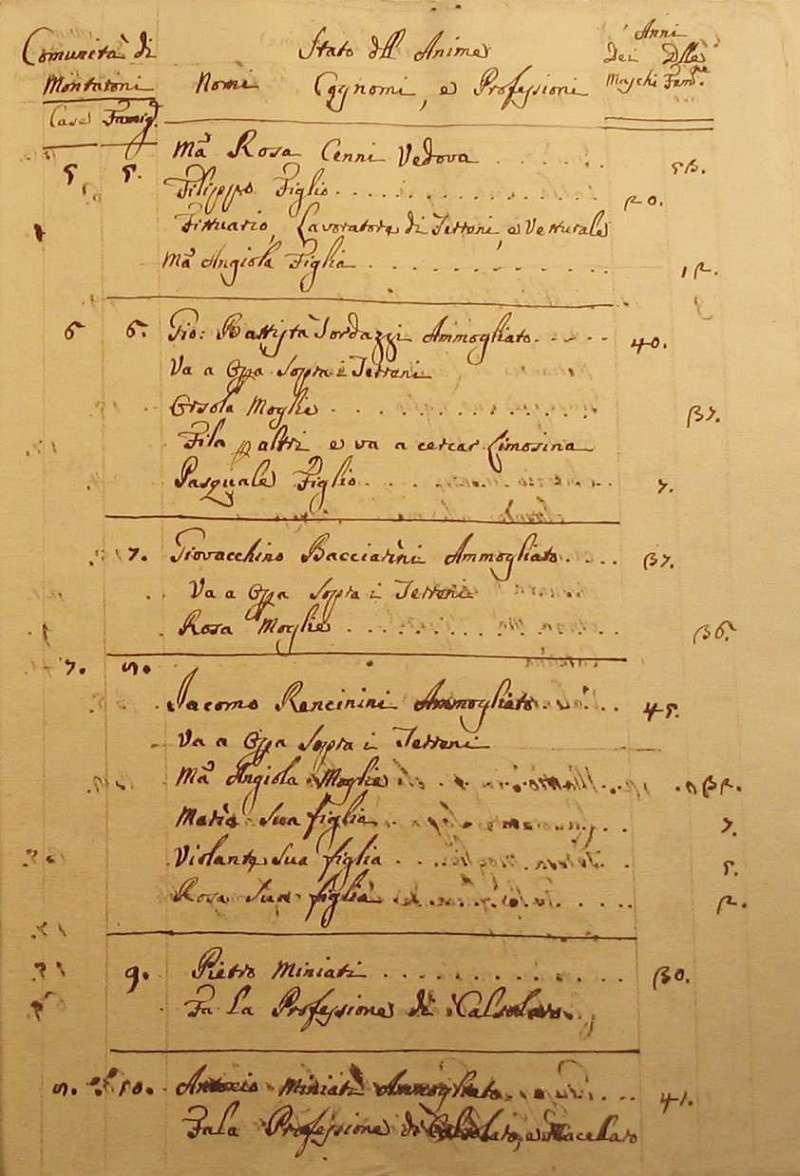 Comunità di Stato dell Anime Anni
Montajoni Nomi Cognomi, e Professioni Dei Maschi Delle Fem.ne
Case Famigl.
Ma Rosa Cenni Vedova . . . . . .
5 5. Filippo Figlio . . . . . . . . . . 20.
Fittuario, Lavoratore di Terreni, e Vetturale
Ma Angiola Figlia . . . . . . . . . . 12.
6 6. Gio: Battista Sordazzi Ammogliato . . . . . 40.
Va a Opa Sopra i Terreni
Orsola Moglie . . . . . . . . . . . . 37.
Fila p altri e va a cercar limosina
Pasquale Figlio . . . . . . . . . . 7.
7. Giovacchino Bacciarini Ammogliato . . . . 37.
Va a Opa Sopra i Terreni
Rosa Moglie . . . . . . . . . . . . 36.
7. 8.
Jacomo Rencinini Ammogliato . . . . 45.
Va a Opa Sopra i Terreni
Ma Angiola Moglie . . . . 32.
Maria Sua figlia . . . . 7.
Violante Sua figlia . . . . 5.
Rosa Sua figlia . . . . 2.
9. Pietro Miniati . . . . . . . . . . . 30.
Fa La Professione di Calsolaro
8. 10. Antonio Miniati Ammogliato . . . . 41.
Fa la Professione di Calsolaro, e Macellaro